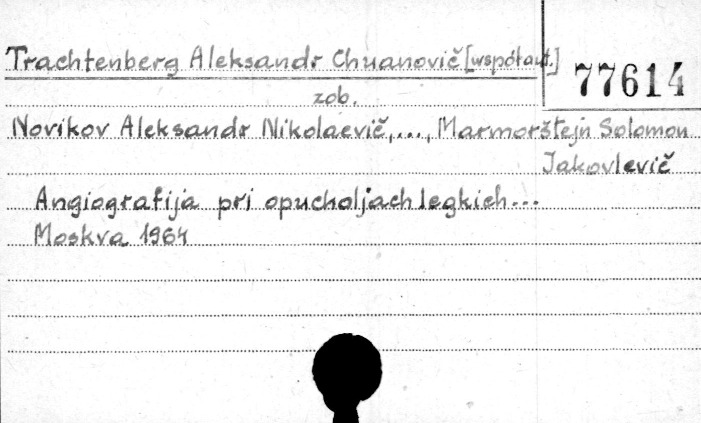 Trachtenberg Aleksandr Chuanovič [współaut.]
77614
zob.
Novikov Aleksandr Nikolaevič,..., Marmorštejn Solomon
Jakovlevič
Angiografija pri opucholjach legkich...
Moskva 1964